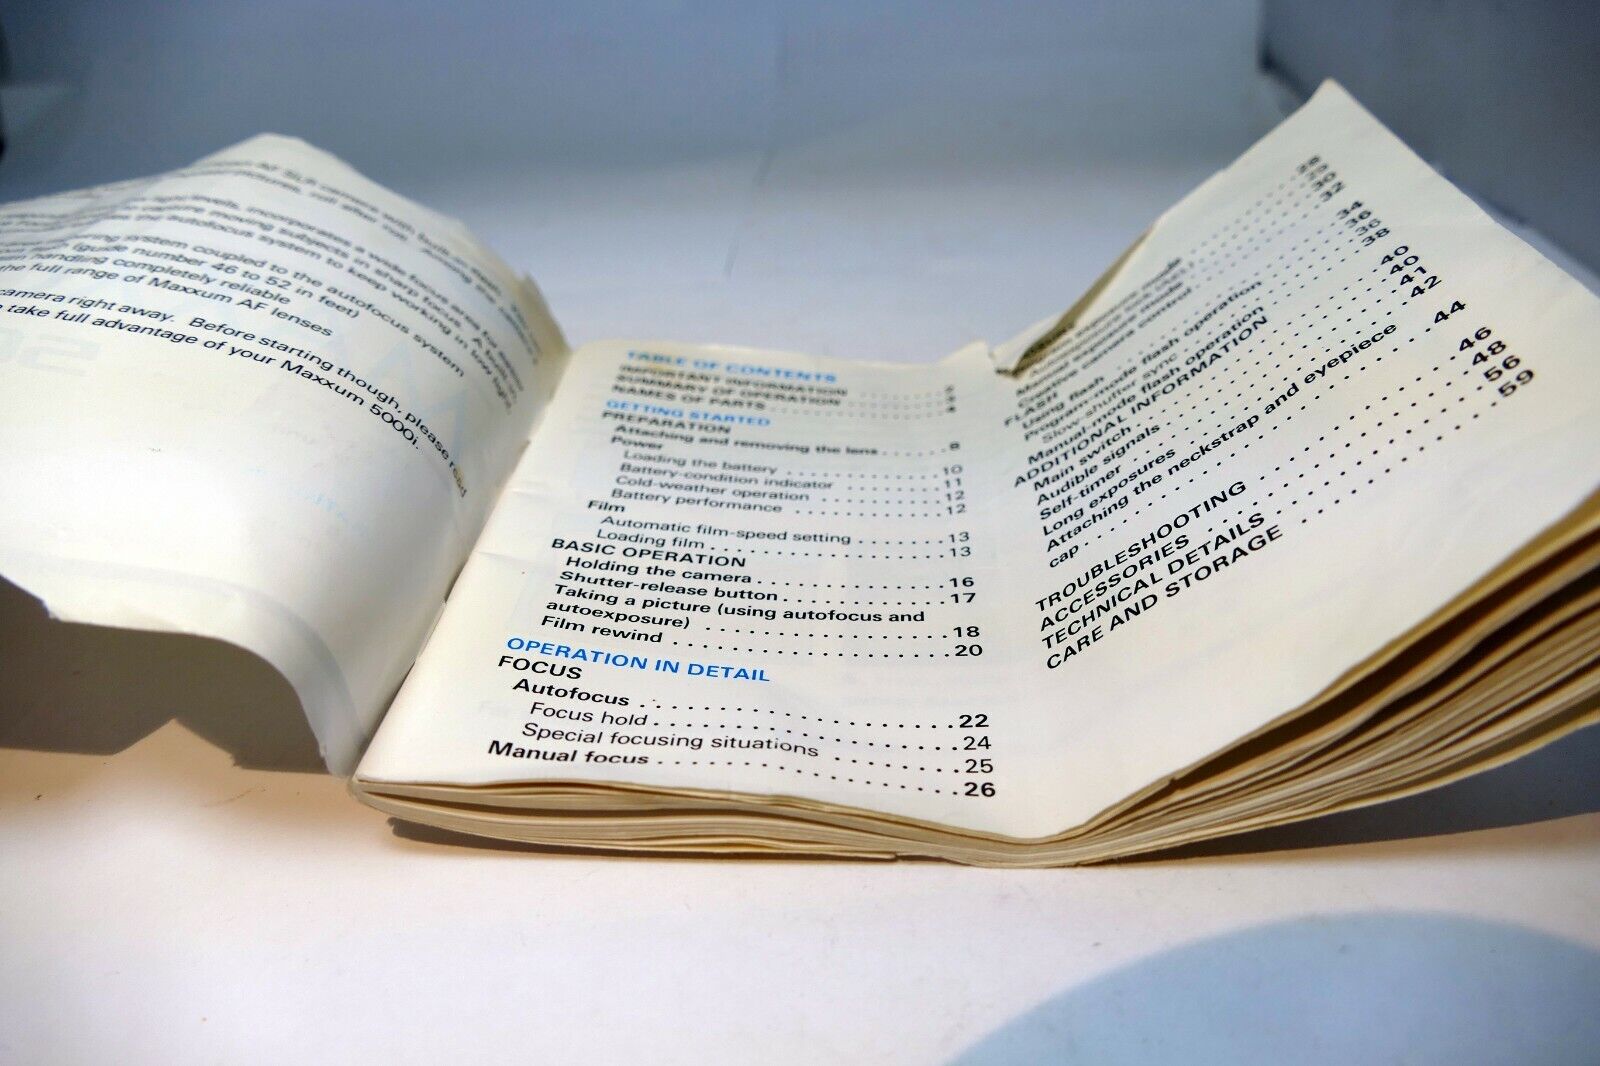 AF SLR camera with built-in
light levels, incorporates a wide focus area for
moving subjects in sharp focus. A built-in
the autofocus system to keep working in low light,
metering system coupled to the autofocus system
(guide number 46 to 52 in feet)
handling completely reliable
the full range of Maxxum AF lenses
camera right away. Before starting though, please read
take full advantage of your Maxxum 5000i.
TABLE OF CONTENTS
IMPORTANT INFORMATION
SUMMARY OF OPERATION
NAMES OF PARTS . . . . . . 4
GETTING STARTED
PREPARATION
Attaching and removing the lens . . . . . . 8
Power
Loading the battery . . . . . . 10
Battery-condition indicator . . . . . . 11
Cold-weather operation . . . . . . 12
Battery performance . . . . . . 12
Film
Automatic film-speed setting . . . . . . 13
Loading film . . . . . . 13
BASIC OPERATION
Holding the camera . . . . . . 16
Shutter-release button . . . . . . 17
Taking a picture (using autofocus and
autoexposure) . . . . . . 18
Film rewind . . . . . . 20
OPERATION IN DETAIL
FOCUS
Autofocus . . . . . . 22
Focus hold . . . . . . 24
Special focusing situations . . . . . . 25
Manual focus . . . . . . 26
Manual exposure mode
Creative exposure control
FLASH
Using flash . . . . . . 34
Program-mode flash operation . . . . . . 36
Slow-shutter sync operation . . . . . . 36
Manual-mode flash operation . . . . . . 38
ADDITIONAL INFORMATION
Main switch . . . . . . 40
Audible signals . . . . . . 40
Self-timer . . . . . . 41
Long exposures . . . . . . 42
Attaching the neckstrap and eyepiece
cap . . . . . . 44
TROUBLESHOOTING . . . . . . 46
ACCESSORIES . . . . . . 48
TECHNICAL DETAILS . . . . . . 56
CARE AND STORAGE . . . . . . 59